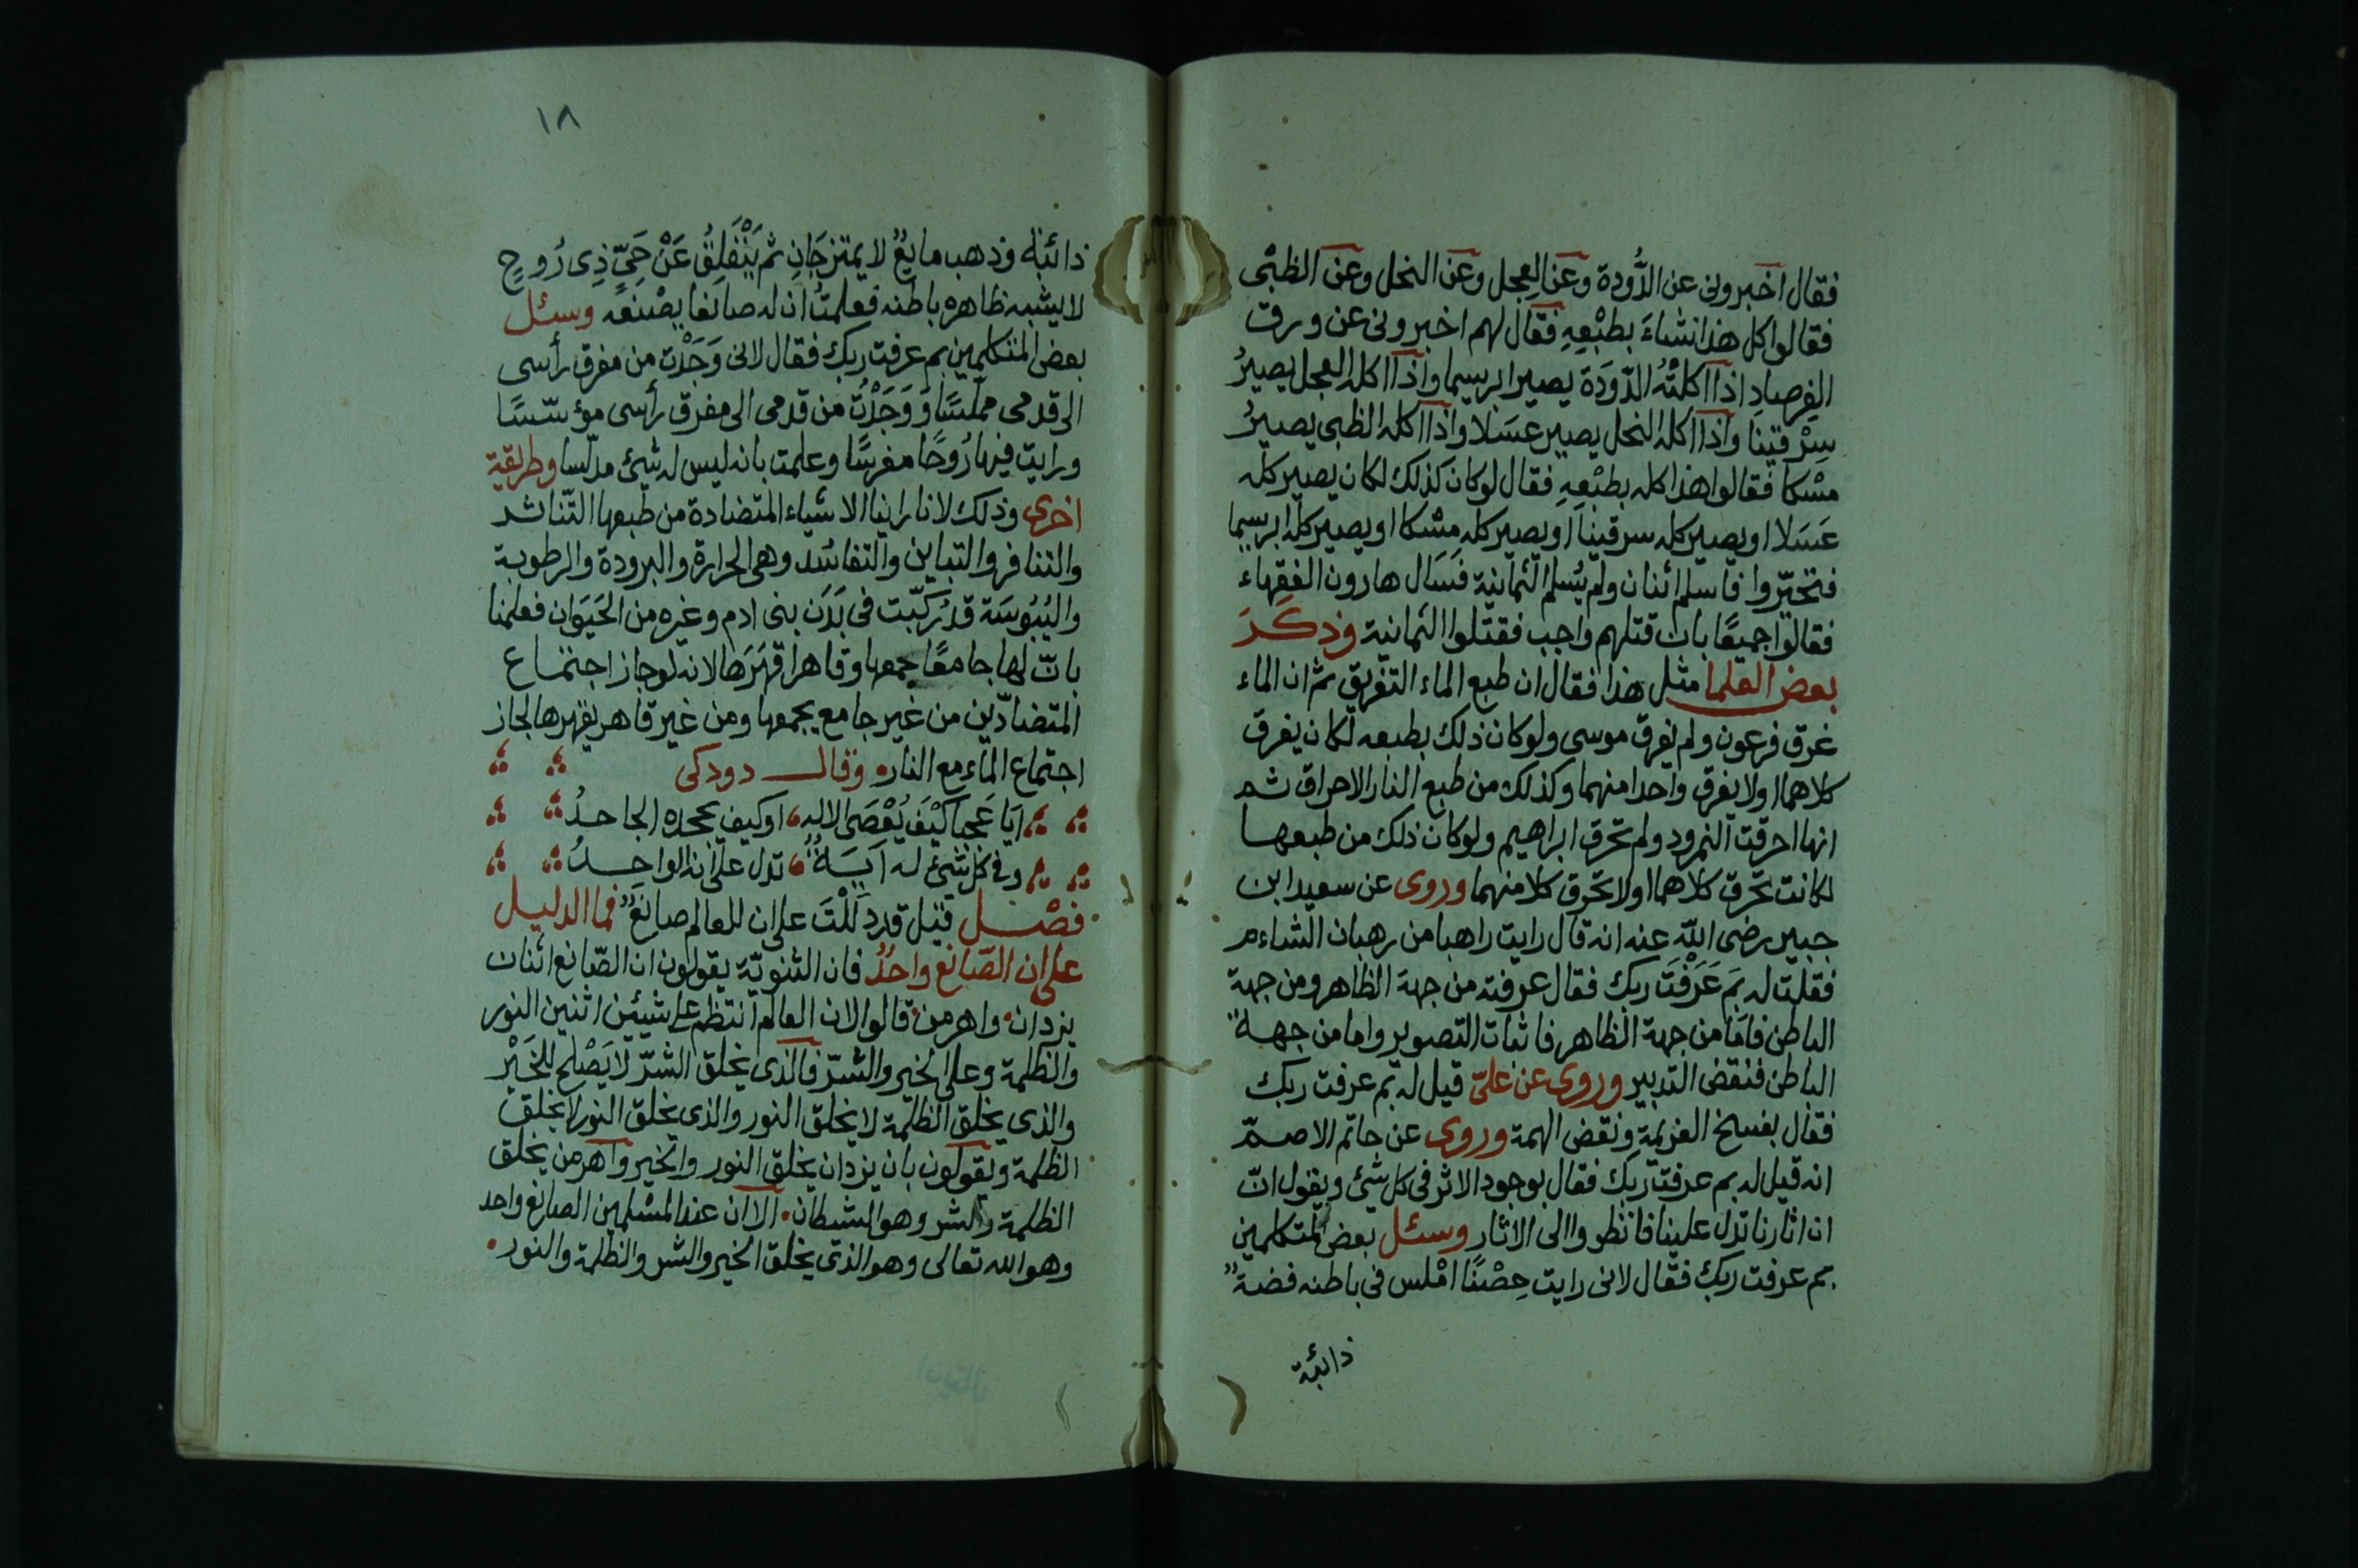 فقال اخبرونى عن الدُّودة وعن العجل وعن النحل وعن الظبْى
فقالوا كل هذا نشاءَ بطبْعِهِ فقال لهم اخبرونى عن ورق
الفِرصادِ اذا اكلتْهُ الدّودَة يصير ابريسما واذا اكله العجل يصيرُ
سِرْقينا واذا اكله النحل يصير عسَلا واذا اكله الظبى يصيرُ
مسْكا فقالوا هذا كله بطبْعِهِ فقال لو كان كذلك لكان يصير كله
عَسَلا او يصير كله سرقينا او يصير كله مِسْكا او يصير كله ابريسما
فتحيّروا فاسلم اثنان ولم يُسلم الثمانية فسَال هارون الفقهاء
فقالوا جميعًا بان قتلهم واجب فقتلوا الثمانية وذكَرَ
بعض العلما مثل هذا فقال ان طبع الماء التغريق ثم ان الماء
غرق فرعون ولم يغرق موسى ولو كان ذلك بطبعه لكان يغرق
كلاهما او لا يغرق واحدا منهما وكذلك من طبع النار الاحراق ثم
انها احرقت النمرود ولم تحرق ابراهيم ولو كان ذلك من طبعها
لكانت تحرق كلاهما او لا تحرق كلا منهما وروى عن سعيد ابن
جبير رضى الله عنه انه قال رايت راهبا من رهبان الشاءم
فقلت له بمَ عَرَفْتَ ربك فقال عرفته من جهة الظاهر ومن جهة
الباطن فامّا من جهة الظاهر فاثبات التصوير واما من جهة
الباطن فنقض التدبير وروى عن علىّ قيل له بم عرفت ربك
فقال بفسخ العزيمة ونقض الهمة وروى عن حاتم الاصمّ
انه قيل له بم عرفت ربك فقال بوجود الاثر فى كل شئ ويقول انّ
ان اثارنا تدل علينا فانظروا الى الاثار وسئل بعض المتكلمين
بم عرفت ربك فقال لانى رايت حِصْنًا امْلس فى باطنه فضة
ذائبة
١٨
ذائبة وذهب مايعٌ لا يمتزجَانِ ثم يَنْفَلِقُ عَنْ حَىٍّ ذِى رُوحٍ
لا يشبه ظاهره باطنه فعلمتُ ان له صانعا يصْنعه وسئل
بعض المتكلمين بم عرفت ربك فقال لانى وَجَدْت من مفرق رأسى
الى قدمى مملّسًا وَوَجَدْتُ من قدمى الى مفرق رأسى مؤسّسًا
ورايت فيها رُوحًا مغرسًا وعلمت بانه ليس له شئ مدلّسا وطريقة
اخرى وذلك لانا راينا الاشياء المتضادة من طبعها التّناشد
والتنافر والتباين والتفاسُد وهى الحرارة والبرودة والرطوبة
واليُبُوسَة قد رُكّبت فى بَدَن بنى ادم وغيره من الحَيَوَان فعلمنا
بانّ لها جامعًا جمعها وقاهرا قهَرَها لانه لو جاز اجتماع
المتضادّين من غير جامع يجمعها ومن غير قاهر يقهرها لجاز
اجتماع الماء مع النار وقال دودكى
ايَا عَجبا كيْفَ يُعْصَى الاله او كيف يجحده الجاحدُ
وفى كل شئ له آيَةٌ تدل على انه الواحِدُ
فصْل قيل قد دَلّلْتَ على ان للعالم صانعٌ فما الدليل
على ان الصّانع واحدٌ فان الثنويّة يقولون ان الصّانع اثنان
يزدان واهرمن قالوا لان العالم انتظم على شيئين اثنين النور
والظلمة وعلى الخير والشرّ فالذى يخلق الشرّ لا يَصْلح للخَيْر
والذى يخلق الظلمة لا يخلق النور والذى يخلق النور لا يخلق
الظلمة ويقولون بان يزدان يخلق النور والخير واهرمن يخلق
الظلمة والشر وهو الشيطان الا ان عند المسْلمين الصانع واحد
وهو الله تعالى وهو الذى يخلق الخير والشر والظلمة والنور